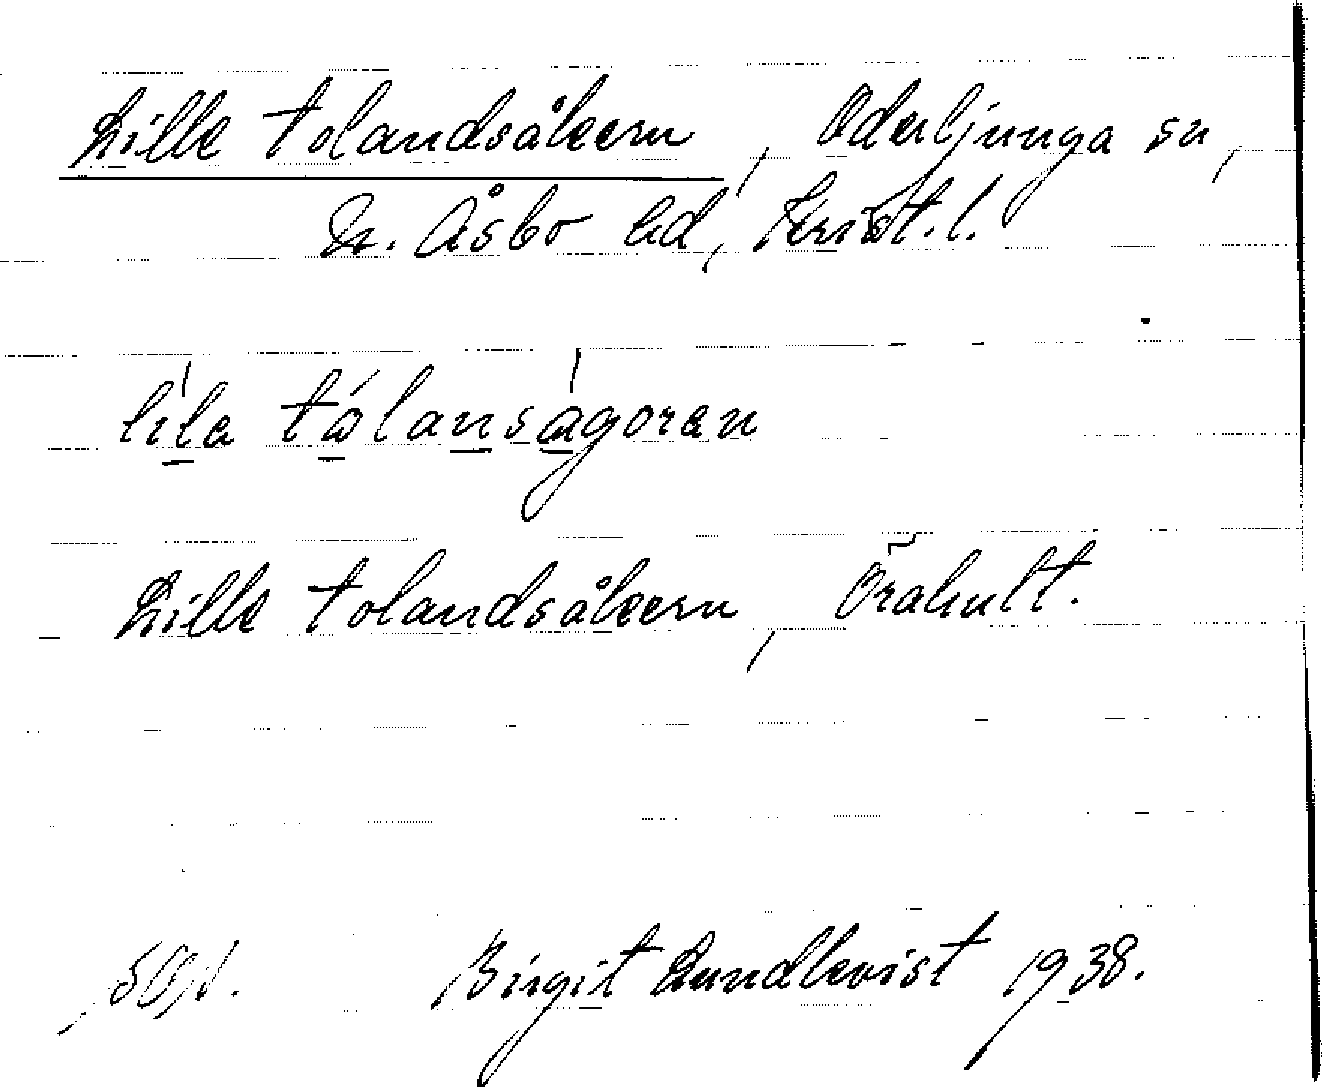 Lille tolandsåkern, Oderljunga sn,
N. Åsbo hd, Krist. l.
lila tålanságoran
Lille tolandsåkern, Örahult.
Birgit Lundkvist 1938.